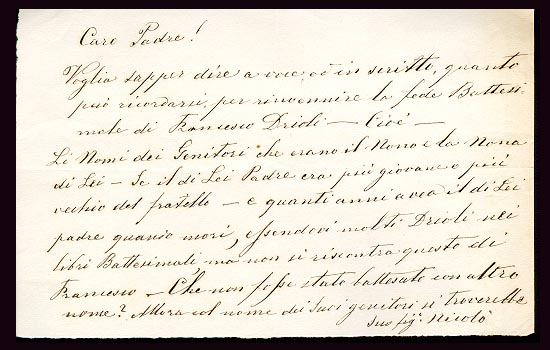 Caro Padre!
Voglia sapper dire a voce od in scritto, quanto
può ricordarsi, per rinvennire la fede Battesi-
male di Francesco Drioli — Cioè —
Li Nomi dei Genitori che erano il Nono e la Nona
di Lei — Se il di Lei Padre era più giovane o più
vecchio del fratello — e quanti anni avea il di Lei
padre quando morì, essendovi molti Drioli nei
libri Battesimali ma non si riscontra questo di
Francesco — Che non fosse stato battesato con altro
nome? Allora col nome dei suoi genitori si troverebbe
Suo fig.º Nicolò